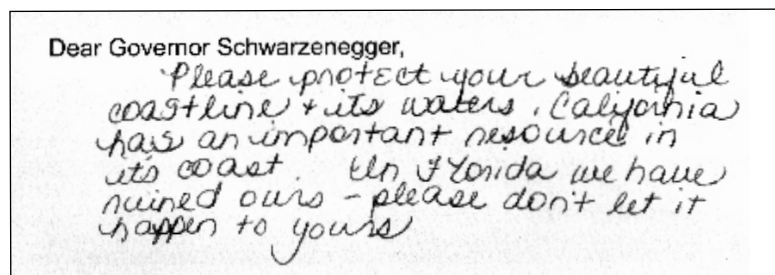 Dear Governor Schwarzenegger,
Please protect your beautiful
coastline + its waters. California
has an important resource in
its coast. In Florida we have
ruined ours - please don't let it
happen to yours